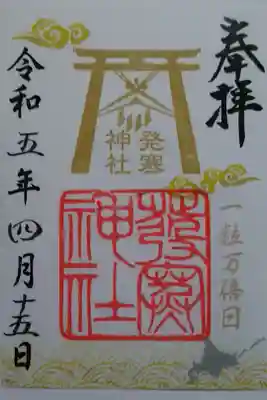 奉拝
発寒
神社
一粒万倍日
発寒
神社
令和五年四月十五日